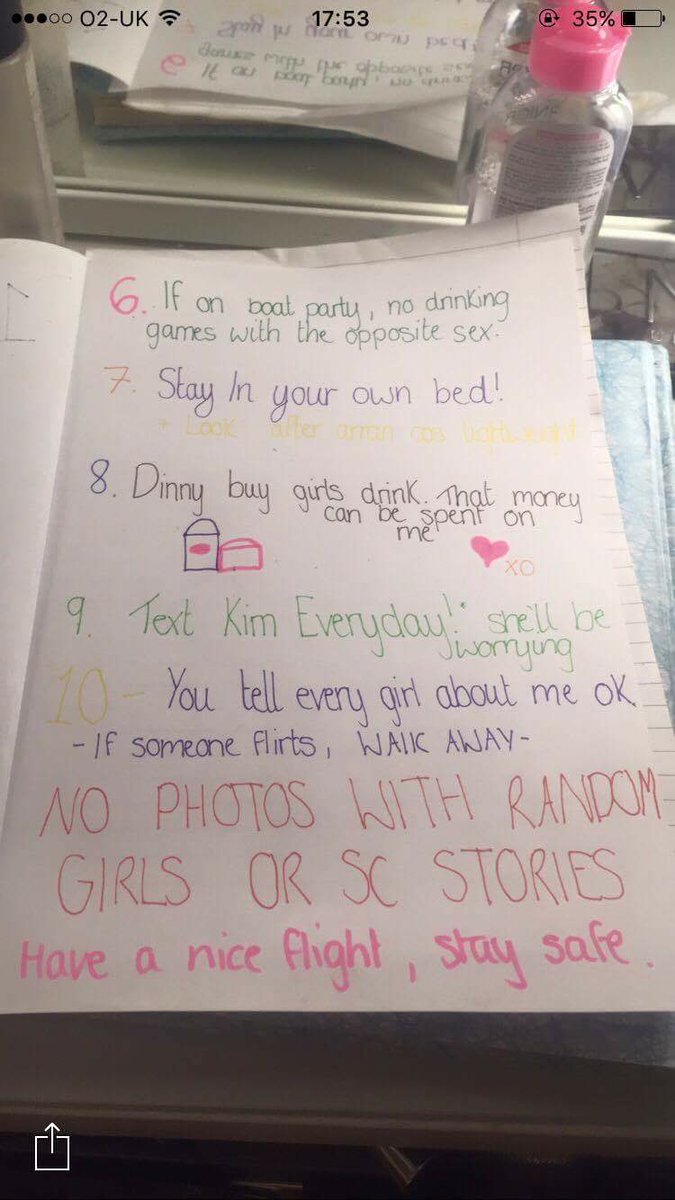 O2-UK 17:53 35%
6. If on boat party, no drinking
games with the opposite sex.
7. Stay In your own bed!
+ Look after arran cos lightweight
8. Dinny buy girls drink. That money
can be spent on
me
XO
9. Text Kim Everyday! she'll be
worrying
10 - You tell every girl about me OK
- If someone flirts, WALK AWAY -
NO PHOTOS WITH RANDOM
GIRLS OR SC STORIES
Have a nice flight, stay safe.